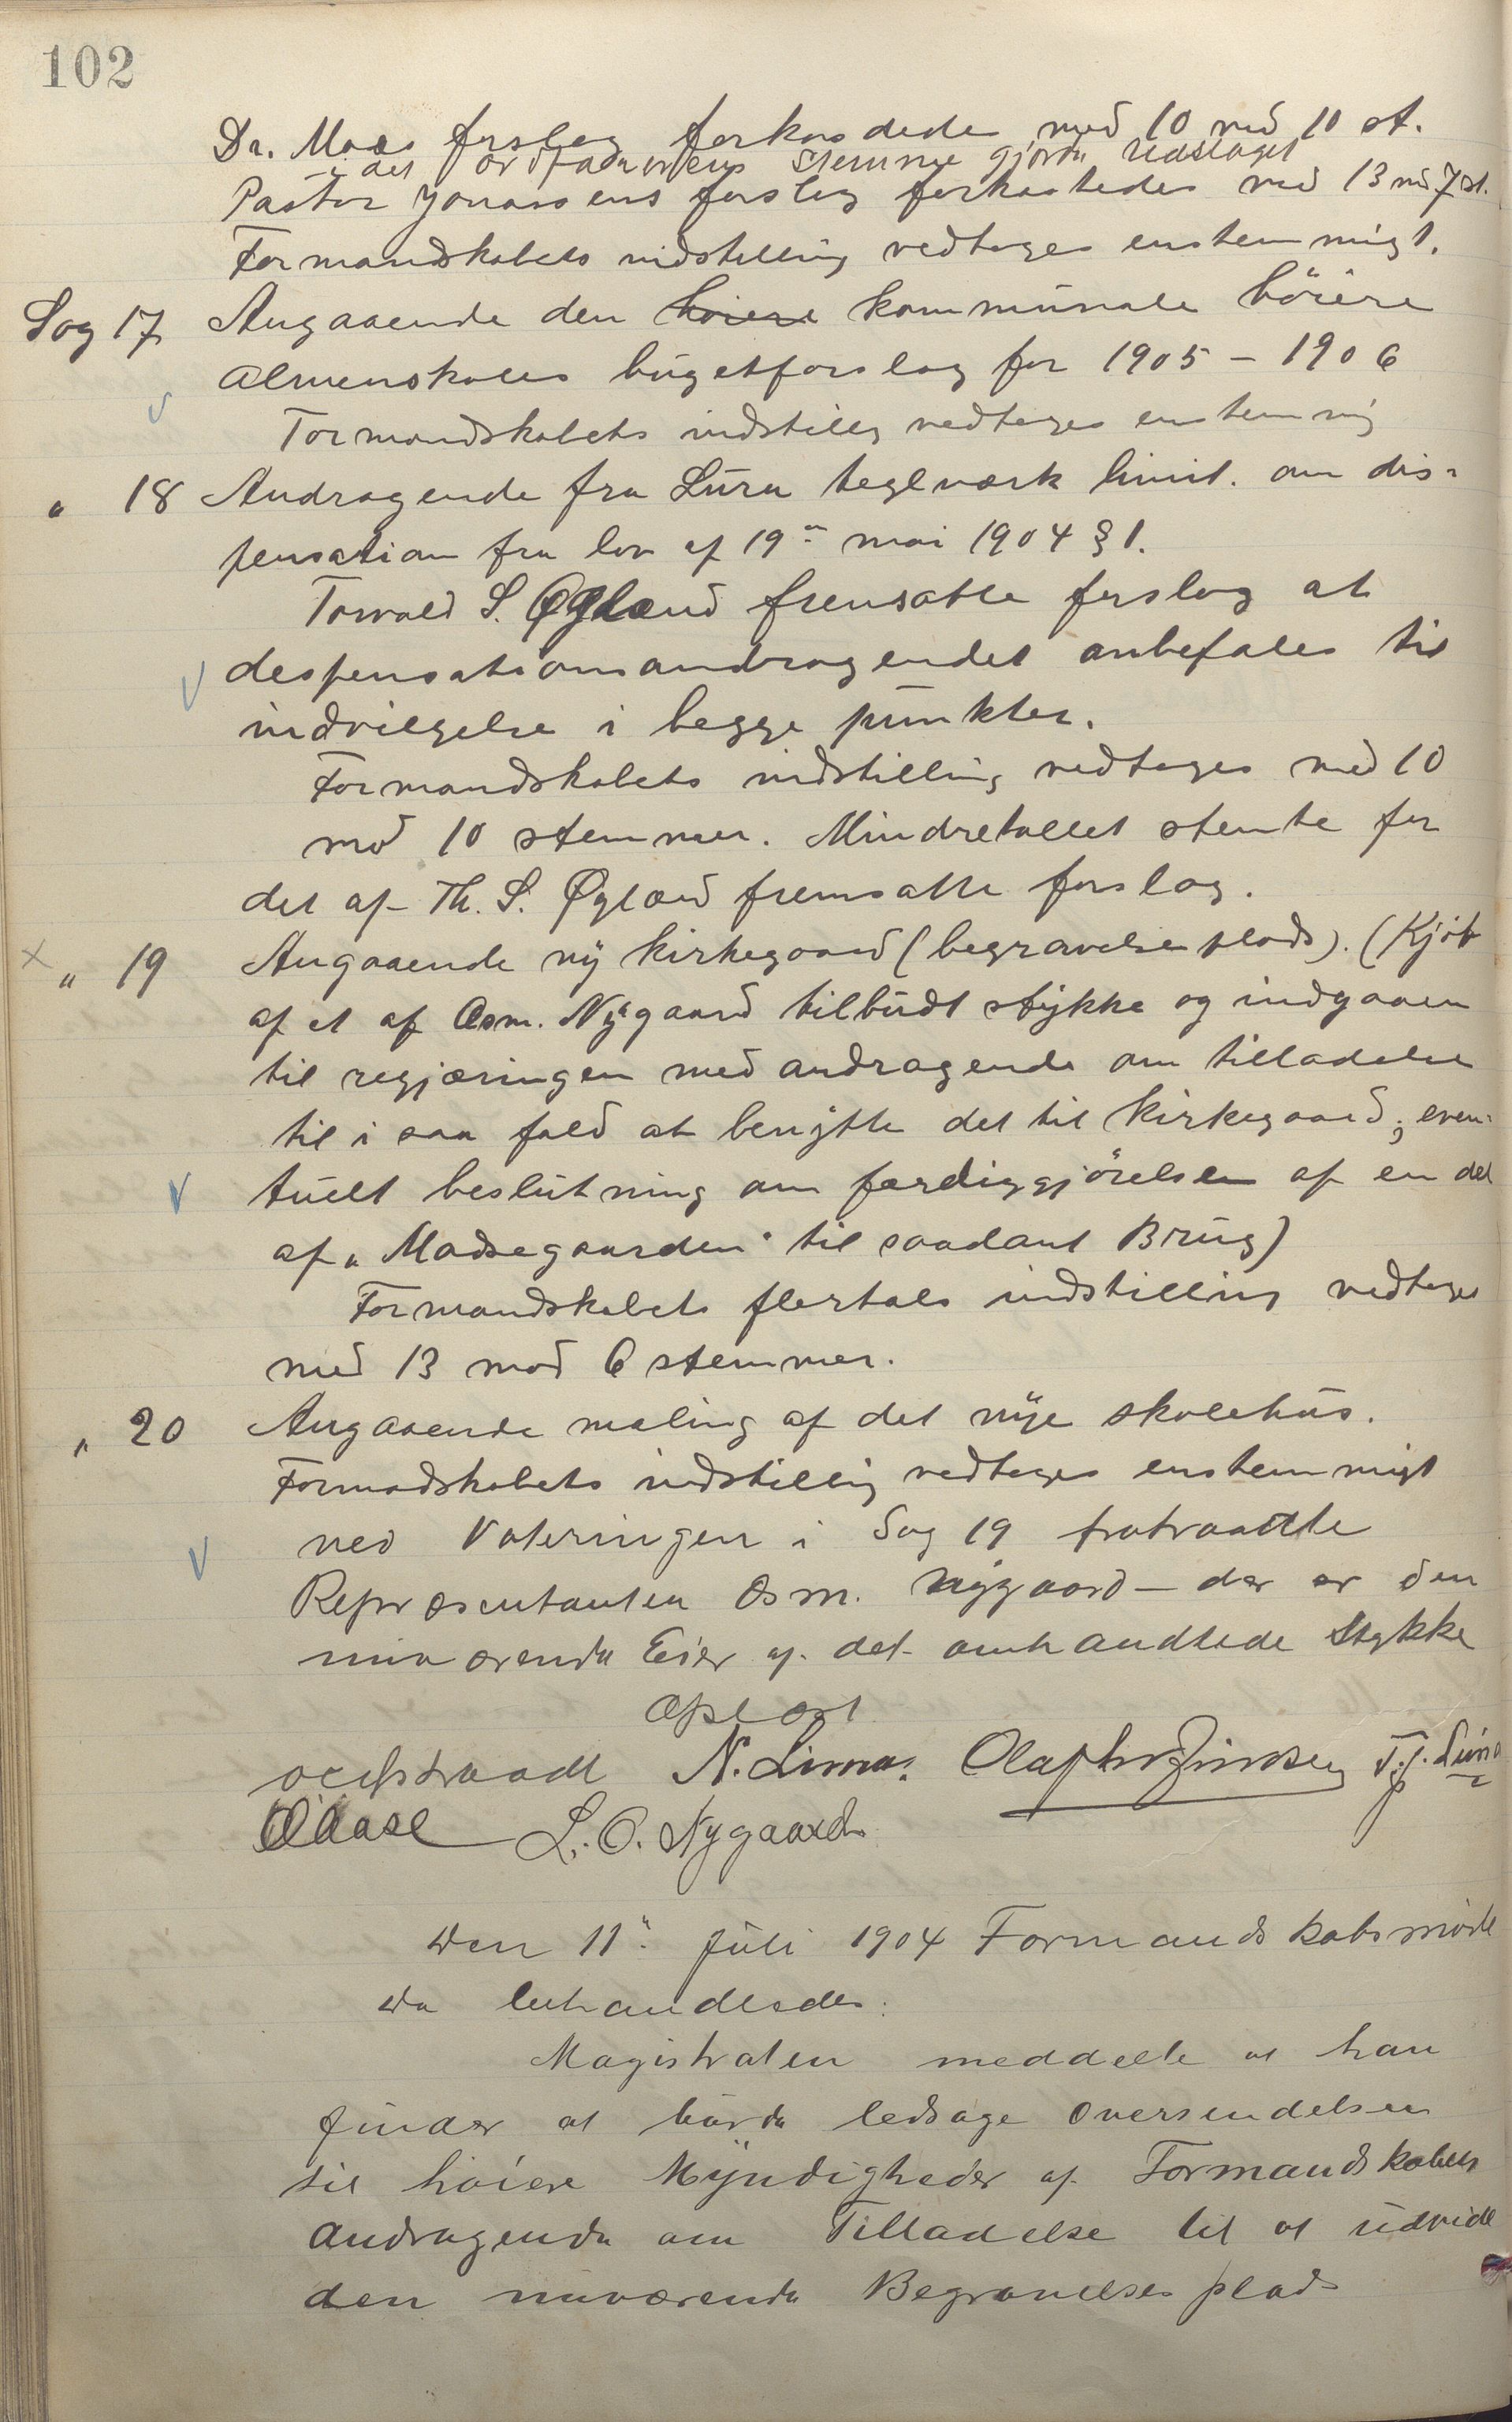 102
Dr. Maas forslag forkasdedes med 10 mod 10 st.
i det ordførerens Stemme gjorde Udslaget
Pastor Jonassens forslag forkastedes med 13 mod 7 st.
Formandskabets indstilling vedtages enstemmigt.
Sag 17 Angaaende den høiere kommunale høiere
Almenskoles bugetforslag for 1905 – 1906
Formandskabets indstilling vedtages enstemmig
" 18 Andragende fra Lura teglværk limit. om dis-
pensation fra lov af 19de mai 1904 § 1.
Torvald S. Øglænd fremsatte forslag at
despensationsandragendet anbefales til
indvilgelse i begge punkter.
Formandskabets indstilling vedtages med 10
mod 10 stemmer. Mindretallet stemte for
det af Th. S. Øglænd fremsatte forslag.
" 19 Angaaende ny kirkegaard (begravelsesplads). (Kjøb
af et af Osm. Nygaard tilbudt stykke og indgaaen
til regjæringen med andragende om tilladelse
til i saa fald at benytte det til kirkegaard; even-
tuelt beslutning om færdiggjørelsen af en del
af „Madsegaarden“ til saadant Brug)
Formandskabets flertals indstilling vedtages
med 13 mod 6 stemmer.
" 20 Angaaende maling af det nye skolehus.
Formadskabets indstillig vedtages enstemmigt
ved Voteringen i Sag 19 fratraadte
Repræsentanten Osm. Nygaard – der er den
nuværende Eier af det omhandlede Stykke
Oplæst
N. Lima. T. J. Lima
O Aase L. O. Nygaard
Den 11te Juli 1904 Formandskabsmøde
da behandledes:
Magistraten meddelte at han
finder at burde ledsage Oversendelsen
til høiere Myndigheder af Formandskabets
Andragende om Tilladelse til at udvide
den nuværende Begravelsesplads